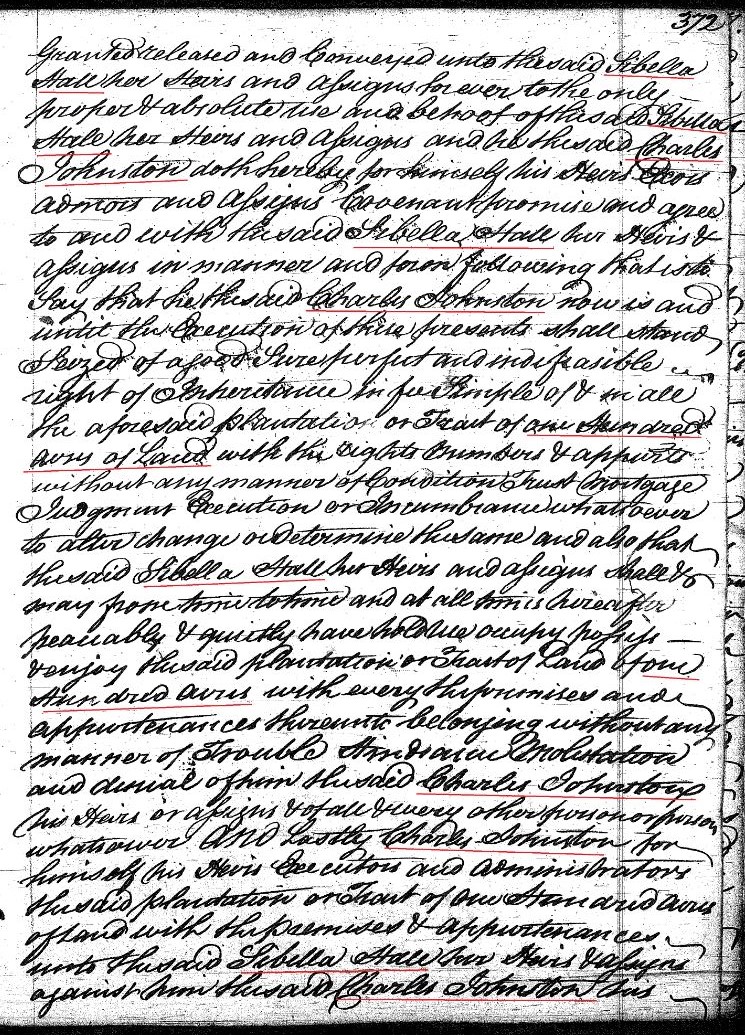 372
Granted released and Conveyed unto the said Sibella
Hall her Heirs and Assigns forever to the only
proper & absolute use and behoof of the said Sibella
Hall her Heirs and Assigns and he the said Charles
Johnston doth hereby for himself his Heirs Exors
admors and Assigns Covenant promise and agree
to and with the said Sibella Hall her Heirs &
Assigns in manner and form following that is to
Say that he the said Charles Johnston now is and
until the Execution of these presents shall stand
Seized of a good Sure perfect and indifeasible
right of Inheritance in fee Simple of & in all
the aforesaid plantation or Tract of one Hundred
acres of Land with the rights members & appurts
without any manner of Condition Trust Mortgage
Judgment Execution or Incumbrance whatsoever
to alter change or Determine the same and also that
the said Sibella Hall her Heirs and assigns shall &
may from time to time and at all times hereafter
peaceably & quietly have hold use occupy possess
& enjoy the said plantation or Tract of Land of one
Hundred acres with every the premises and
appurtenances thereunto belonging without any
manner of Trouble Hindrance Molestation
and denial of him the said Charles Johnston
his Heirs or assigns & of all & every other person or persons
whatsoever And Lastly Charles Johnston for
himself his Heirs Executors and administrators
the said plantation or Tract of One Hundred acres
of Land with the premises & appurtenances
unto the said Sibella Hall her Heirs & assigns
against him the said Charles Johnston his